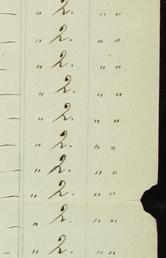 " 2. " "
" 2. " "
" 2. " "
" 2. " "
" 2. " "
" 2. " "
" 2. " "
" 2. " "
" 2. " "
" 2. " "